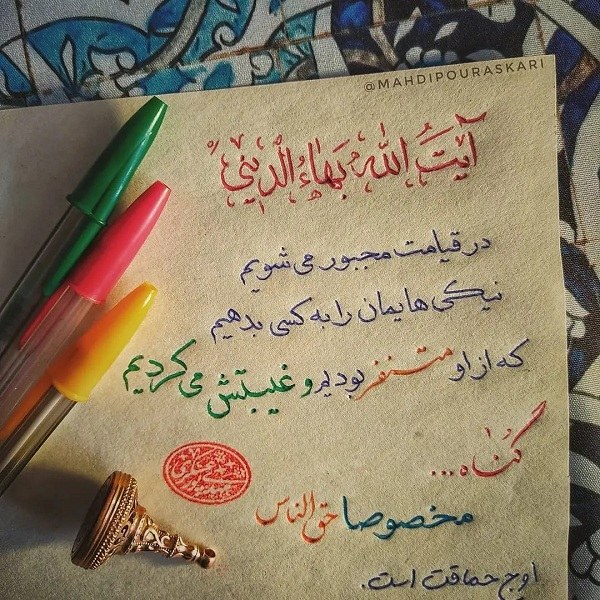 @MAHDIPOURASKARI
آیَتُ اللّٰه بَهاءُالدّینی
در قیامت مجبور می شویم
نیکی هایمان را به کسی بدهیم
که از او متنفر بودیم و غیبتش می کردیم
گناه...
مخصوصا حق الناس
اوج حماقت است.